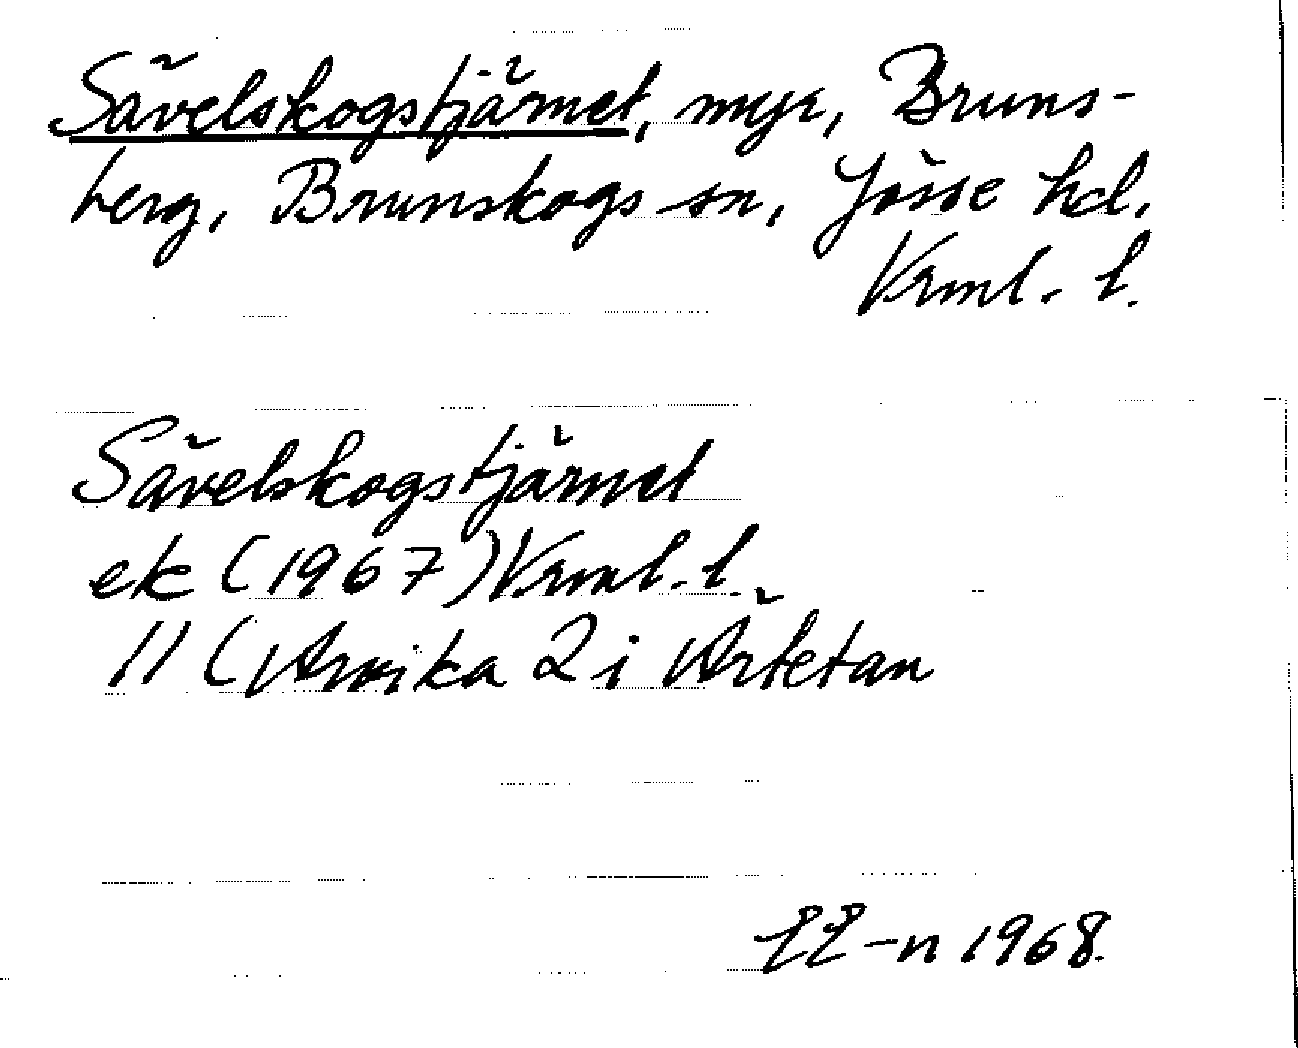 Sävelskogstjärnet, myr, Bruns-
berg, Brunskogs sn, Jösse hd.
Vrml. l.
Sävelskogstjärnet
ek (1967) Vrml. l.
11 C Arvika 2 i Årtetan
EE-n 1968.